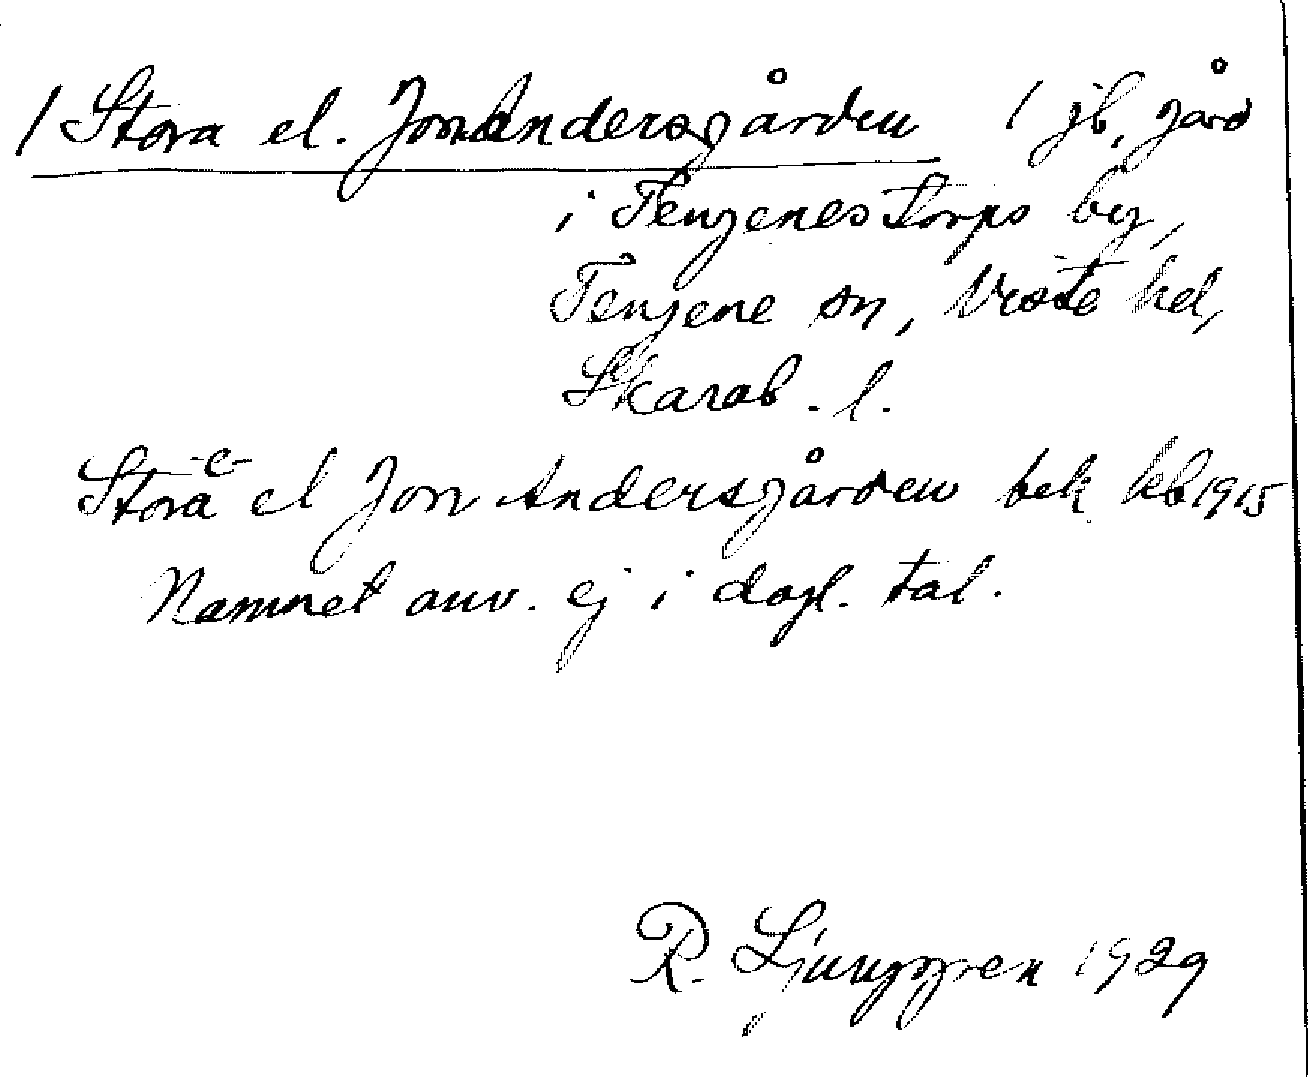 / Stora el. JonAndersgården / jb, gård
i Tengenestorps by,
Tengene sn, Viste hd,
Skarab. l.
Stora -e- el Jon Andersgården bek kb 1915
Namnet anv. ej i dagl. tal.
R. Ljunggren 1929